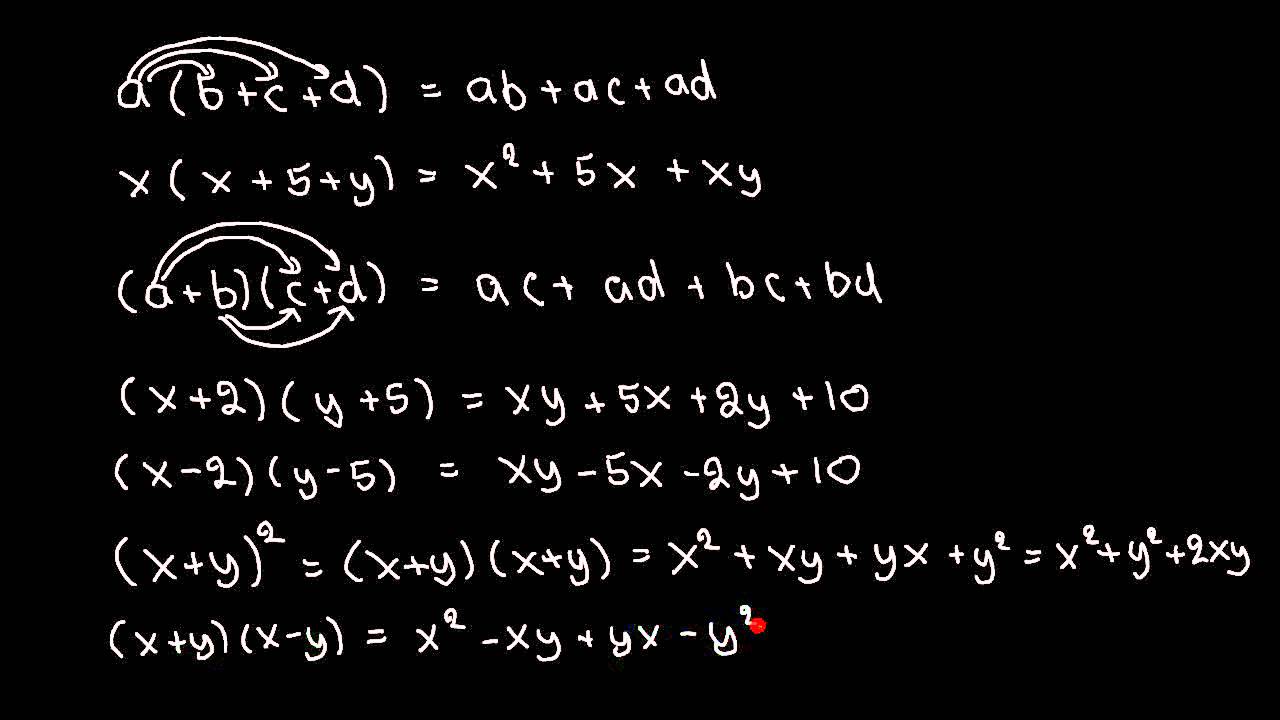 a(b+c+d) = ab+ac+ad
x(x+5+y) = x²+5x+xy
(a+b)(c+d) = ac+ad+bc+bd
(x+2)(y+5) = xy+5x+2y+10
(x-2)(y-5) = xy-5x-2y+10
(x+y)² = (x+y)(x+y) = x²+xy+yx+y² = x²+y²+2xy
(x+y)(x-y) = x²-xy+yx-y²